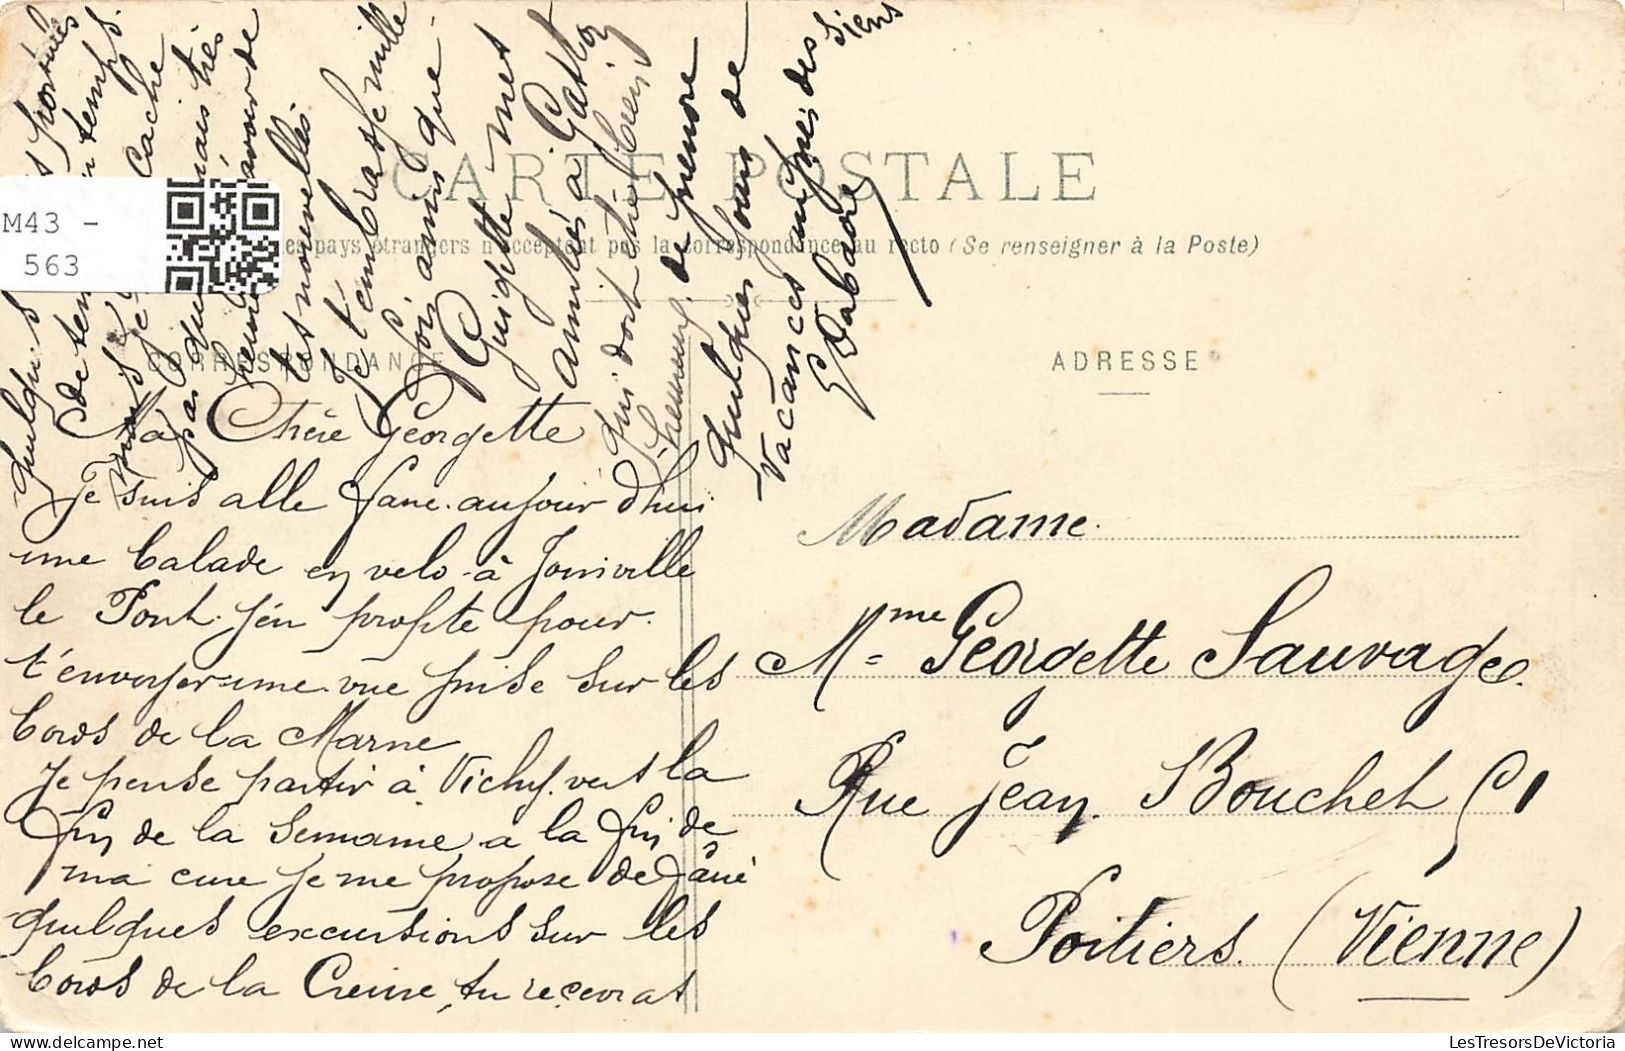 CARTE POSTALE
pays étrangers n'acceptent pas la correspondance au recto (Se renseigner à la Poste)
CORRESPONDANCE
ADRESSE
M43 -
563
Ma Chère Georgette
Je suis allé faire aujour d'hui
une balade en velo à Joinville
le Pont. j'en profite pour
t'envoyer une vue prise sur les
bords de la Marne
Je pense partir à Vichy vers la
fin de la semaine a la fin de
ma cure je me propose de faire
quelques excursions sur les
bords de la Creuse, tu recevras
quelques
de temps en temps.
mais je cache
pas que mais très
avoir de
tes nouvelles
Je t'embrasse mille
fois ainsi que
Guiguitte mes
amitiés à Gaston
qui doit être bien
heureux de prendre
quelques jours de
vacances auprès des siens
G Dabadie
Madame
Mme Georgette Sauvage
Rue Jean Bouchet 51
Poitiers (Vienne)
LesTresorsDeVictoria